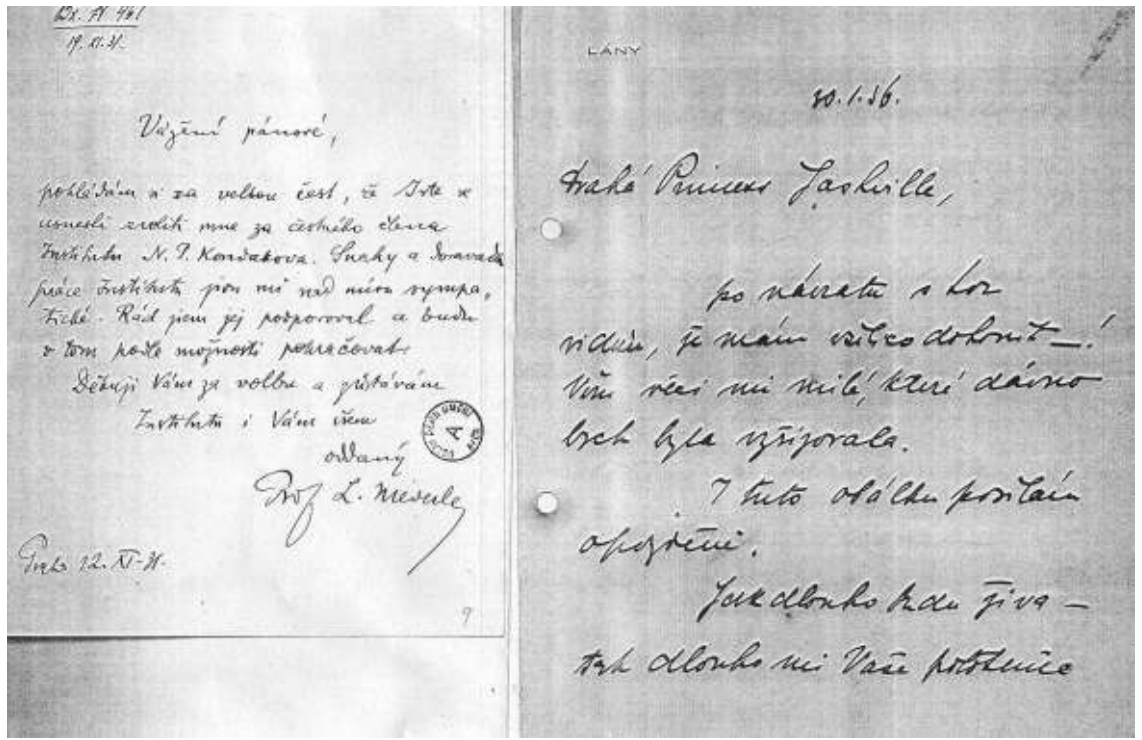 19. XI. 31.
Vážení pánové,
pokládám si za velkou čest, že Jste se
usnesli zvoliti mne za čestného člena
Institutu N. P. Kondakova. Snahy a dosavadní
práce Institutu jsou mi nad míru sympa-
tické. Rád jsem jej podporoval a budu
v tom podle možnosti pokračovat.
Děkuji Vám za volbu a zůstávám
Institutu i Vám všem
oddaný
Prof L. Niederle
Praha 12. XI-31.
9
LÁNY
30.1.36.
Drahá Princess Jashville,
po návratu s hor
vidím, že mám vše dohonit —!
věci mi milé, které dávno
bych byla vyřizovala.
I tuto obálku posílám
opozděně.
Jak dlouho budu živa —
tak dlouho mi Vaše